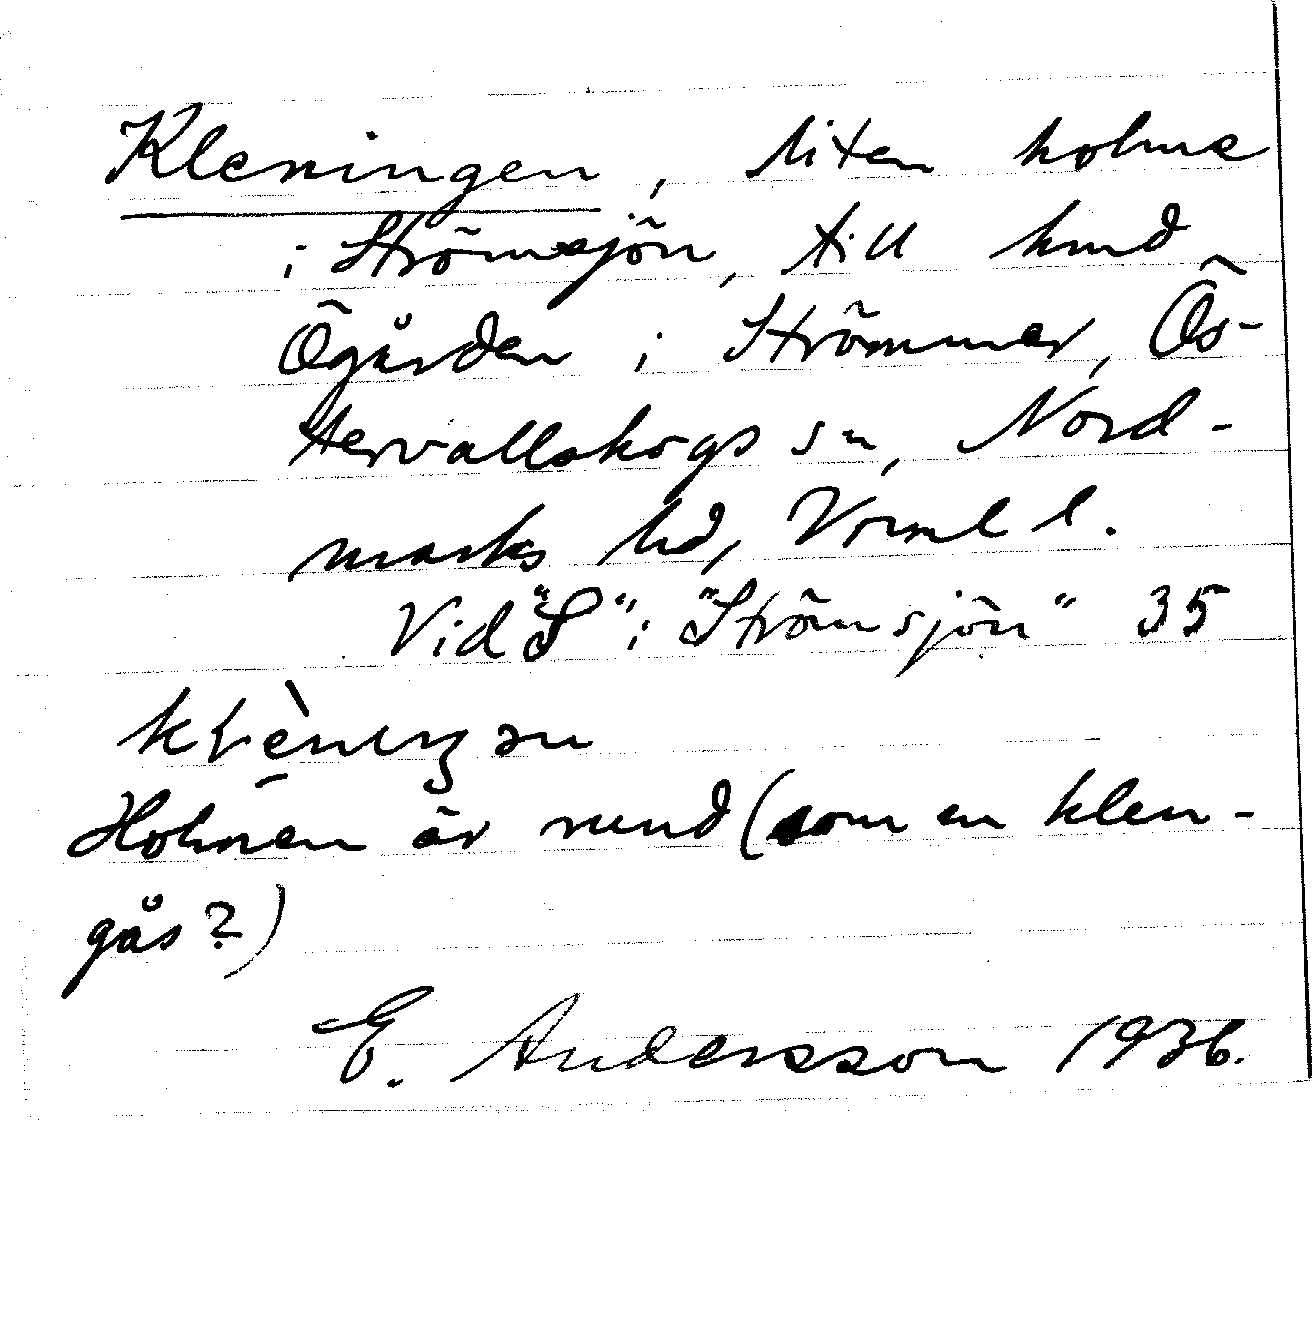 Kleningen, liten holme
i Strömsjön, till hmd
Ögården i Strömmer, Ös-
tervallskogs sn, Nord-
marks hd, Värml l.
Vid "S" i "Strömsjön" 35
Holmen är rund (som en klen-
gås?)
E. Andersson 1936.